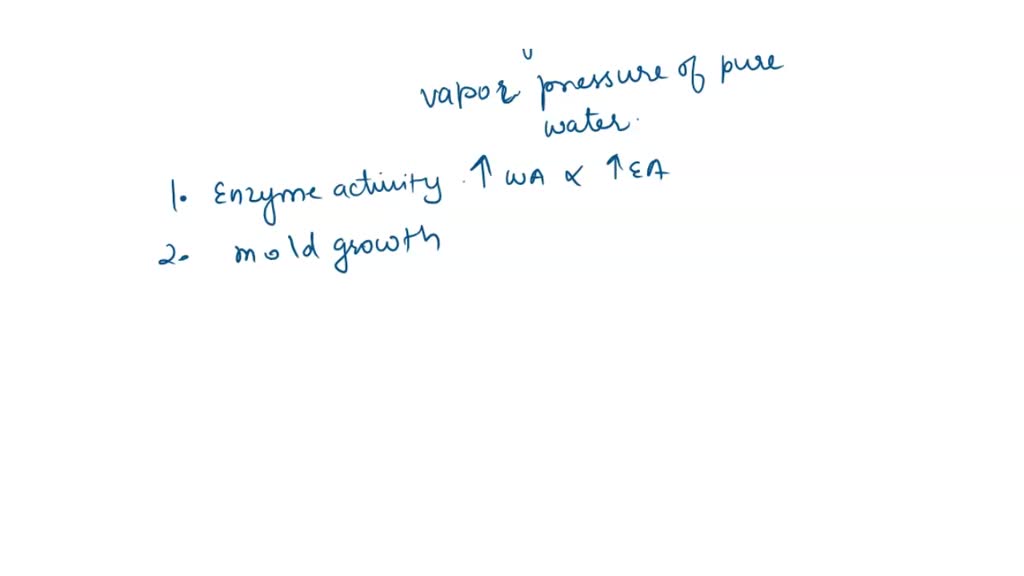 vapor pressure of pure
water.
1. Enzyme activity ↑ WA ∝ ↑ EA
2. mold growth